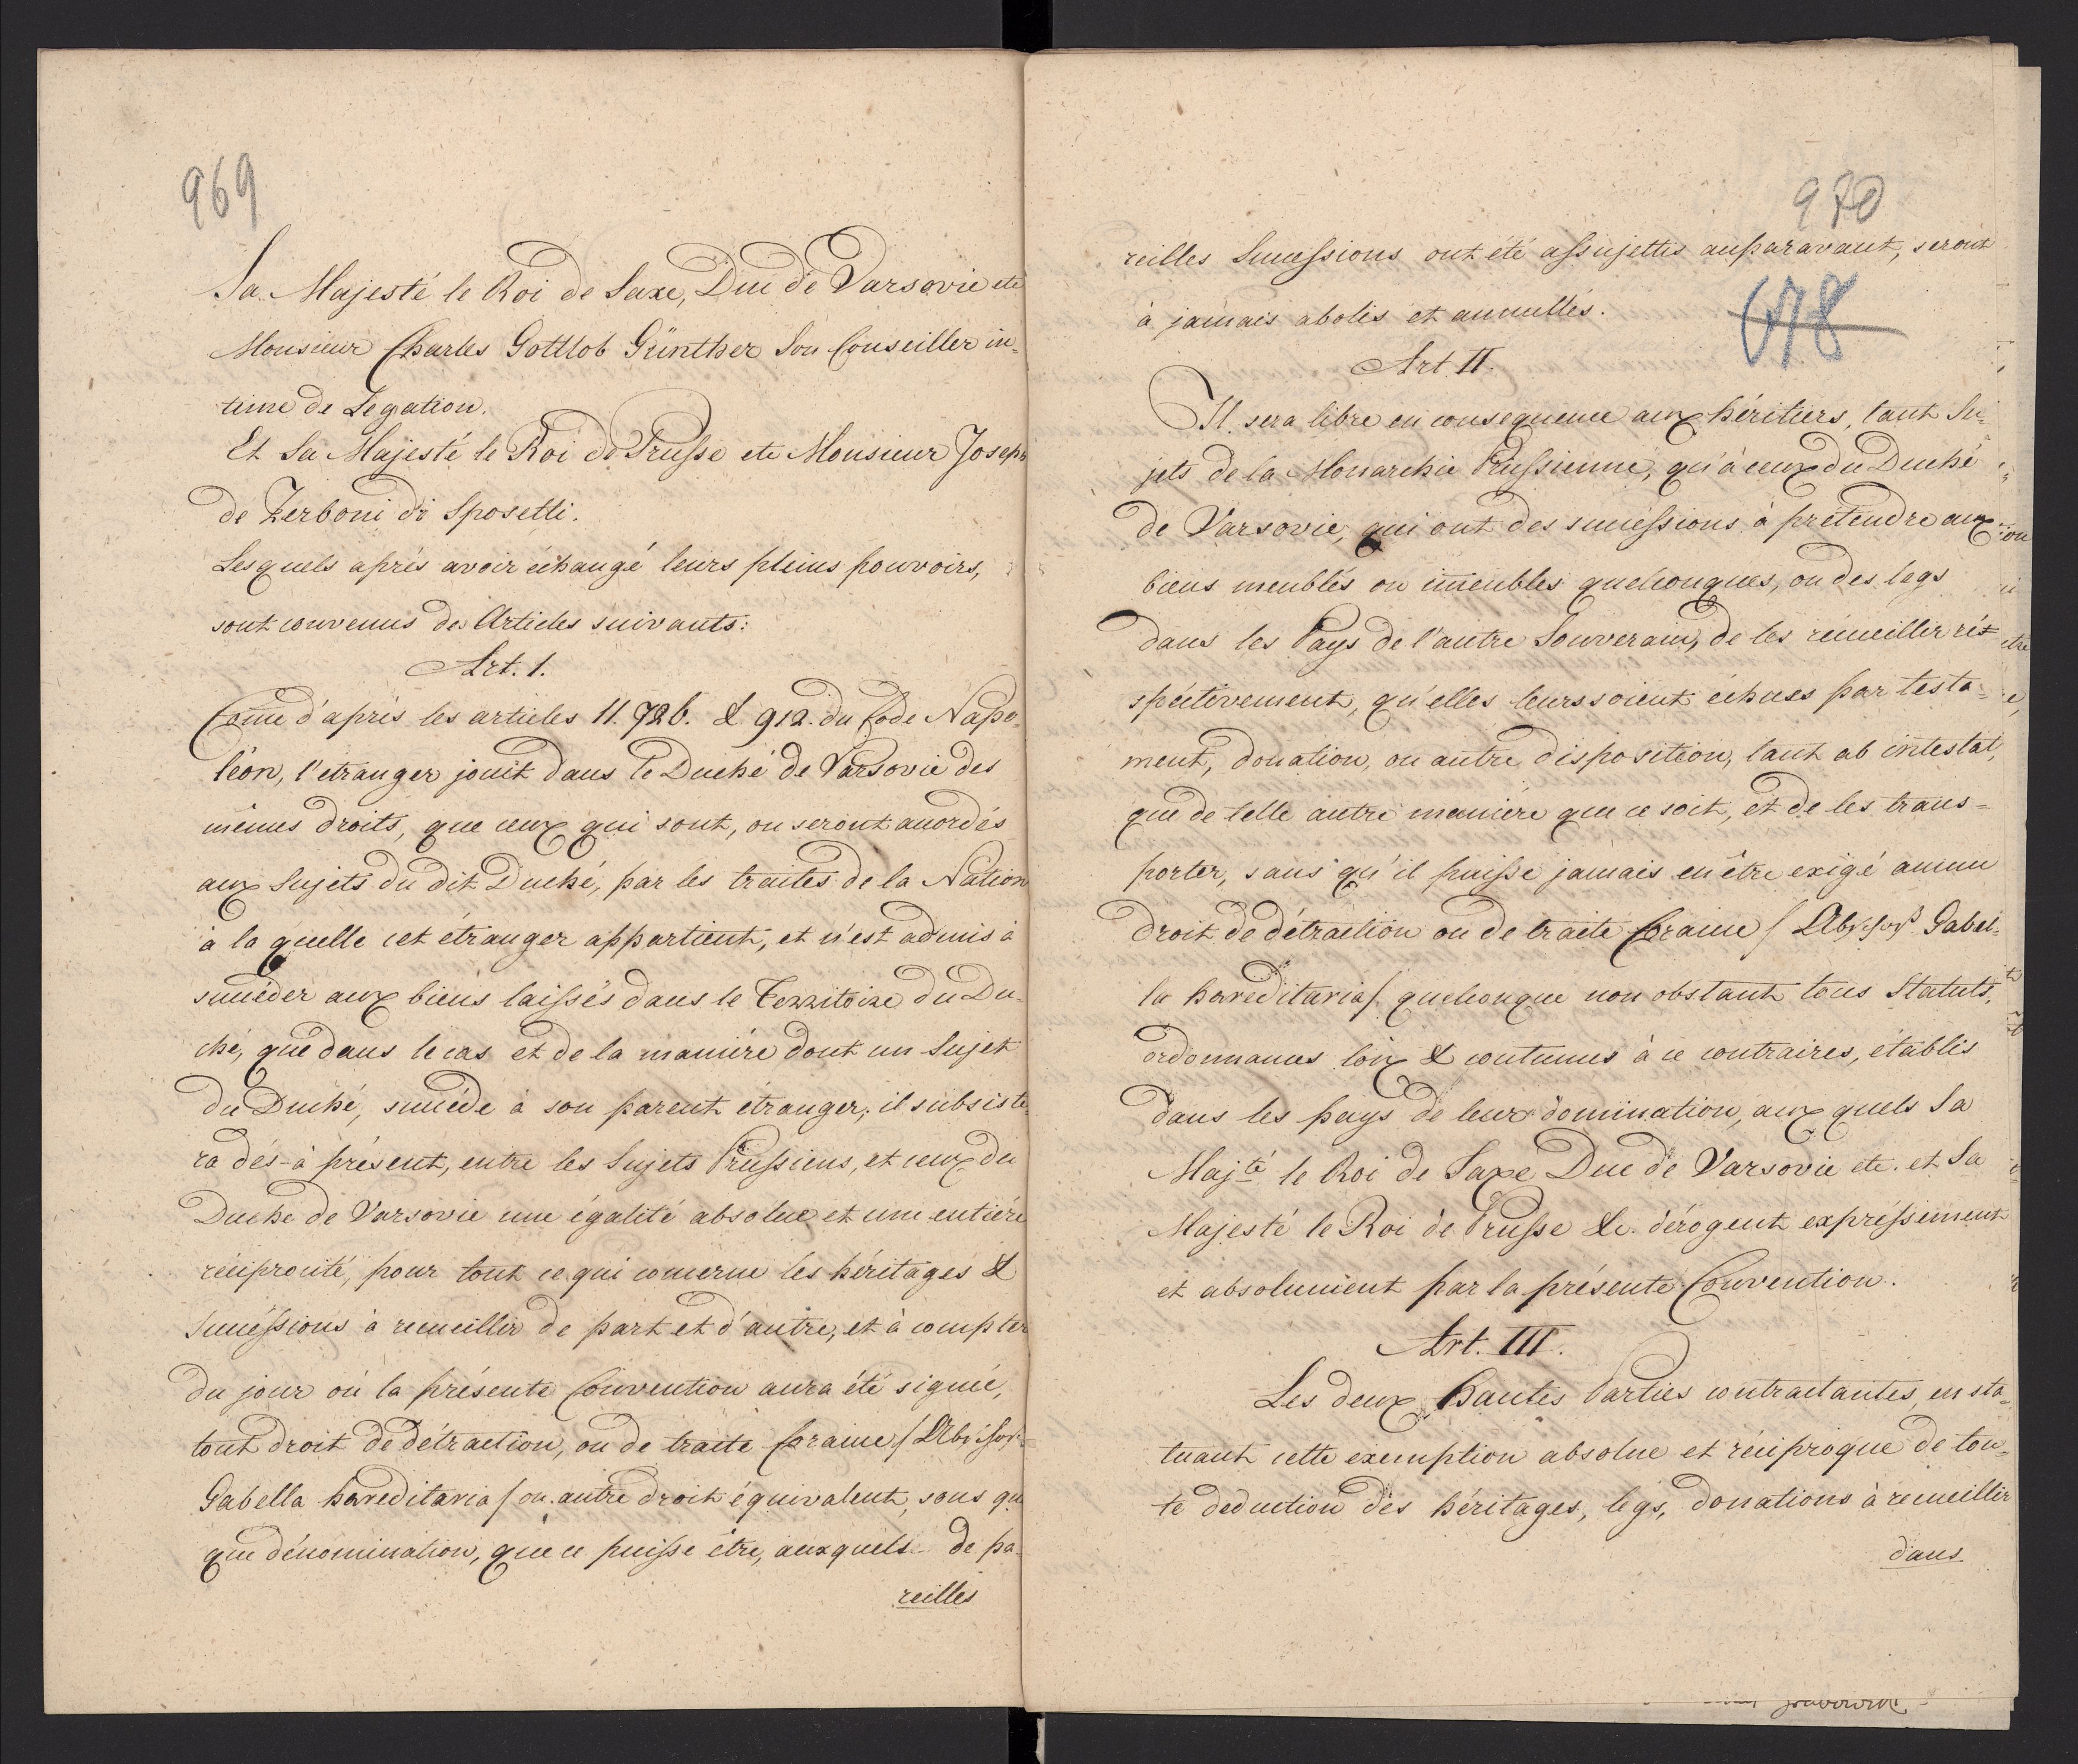 969
Sa Majesté le Roi de Saxe, Duc de Varsovie etc
Monsieur Charles Gottlob Günther Son Conseiller in-
time de Legation.
Et Sa Majesté le Roi de Prusse etc Monsieur Joseph
de Zerboni di Sposetti.
Lesquels aprés avoir échangé leurs pleins pouvoirs,
sont convenus des Articles suivants:
Art. 1.
Come d'aprés les articles 11. 726. & 912. du Code Napo-
léon, l'etranger jouit dans le Duché de Varsovie des
mêmes droits, que ceux qui sont, ou seront accordés
aux Sujets du dit Duché, par les traités de la Nation
à la quelle cet étranger appartient, et n'est admis à
succéder aux biens laissés dans le Territoire du Du-
ché, que dans le cas et de la maniére dont un Sujet
du Duché, succéde à son parent étranger, il subsiste-
ra dés-à présent, entre les Sujets Prussiens, et ceux du
Duche de Varsovie une égalité absolue et une entiére
réciprocité, pour tout ce qui concerne les héritages &
Successions à recueillir de part et d'autre, et à compter
du jour où la présente Convention aura été signée,
tout droit de détraction, ou de traite foraine / Abschoß-
Gabella hæreditaria / ou autre droit équivalent, sous qu
que dénomination, que ce puisse être, auxquels de pa-
reilles
970
reilles Successions ont été assujettis auparavant, seront
à jamais abolis et annullés.
678
Art. II.
Il sera libre en consequence aux héritiers, tant Su-
jets de la Monarchie Prussienne, qu'à ceux du Duché
de Varsovie, qui ont des successions à prétendre aux
biens meublés ou im̅eubles quelconques, ou des legs
dans les Pays de l'autre Souverain, de les récueillir ré-
spéctivement, qu'elles leurs soient échues par testa-
ment, donation, ou autre disposition, tant ab intestat,
que de telle autre maniére que ce soit, et de les trans-
porter, sans qu'il puisse jamais en être exigé aucun
droit de détraction ou de traite foraine / Abschoß Gabel-
la hæreditaria / quelconque non obstant tous Statuts,
ordonnances loix & coutumes à ce contraires, établis
dans les pays de leur domination, aux quels Sa
Majté le Roi de Saxe Duc de Varsovie etc. et Sa
Majesté le Roi de Prusse &c. dérogent expréssement
et absolument par la présente Convention.
Art. III.
Les deux Hautes Parties contractantes, en sta-
tuant cette exemption absolue et réciproque de tou-
te deduction des héritages, legs, donations à recueillir
dans